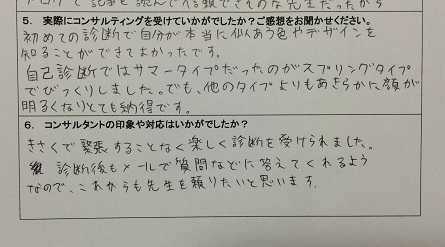 ブログで記事を読んで信頼できそうな先生だったから
5. 実際にコンサルティングを受けていかがでしたか？ご感想をお聞かせください。
初めての診断で自分が本当に似あう色やデザインを
知ることができてよかったです。
自己診断ではサマータイプだったのがスプリングタイプ
でびっくりしました。でも、他のタイプよりもあきらかに顔が
明るくなりとても納得です。
6. コンサルタントの印象や対応はいかがでしたか？
きさくで緊張することなく楽しく診断を受けられました。
診断後もメールで質問などに答えてくれるよう
なので、これからも先生を頼りたいと思います。